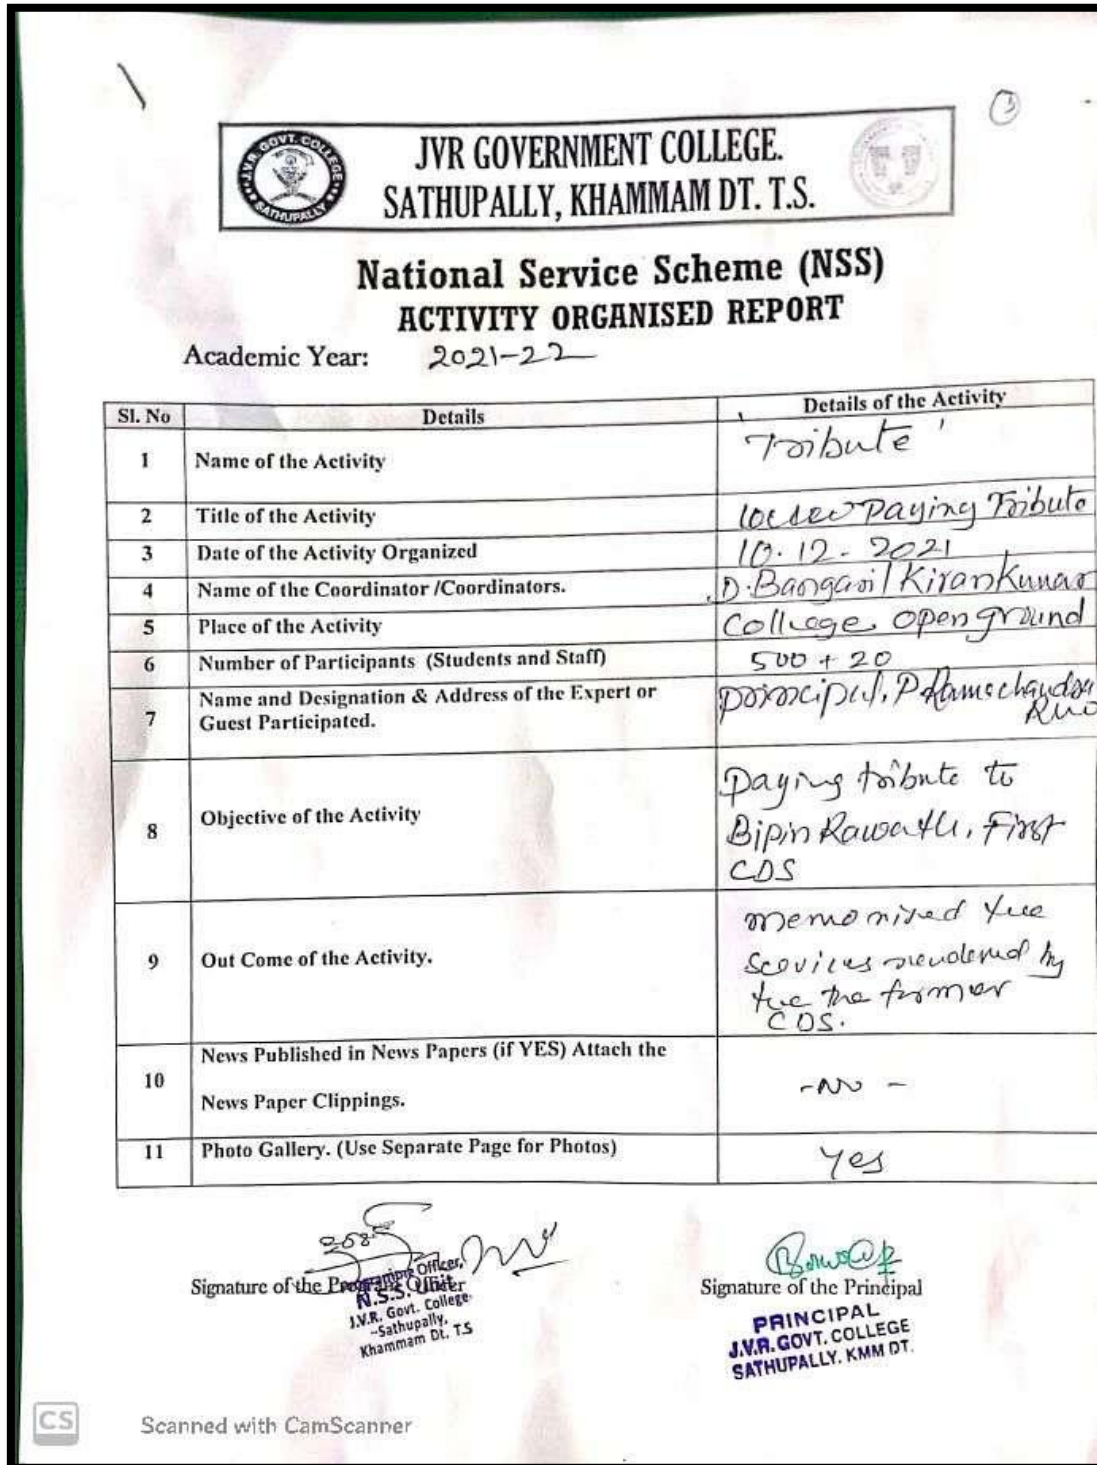 J.V.R. GOVT. COLLEGE
SATHUPALLY
JVR GOVERNMENT COLLEGE.
SATHUPALLY, KHAMMAM DT. T.S.
National Service Scheme (NSS)
ACTIVITY ORGANISED REPORT
Academic Year: 2021-22
Sl. No Details Details of the Activity
1 Name of the Activity 'Tribute'
2 Title of the Activity Paying Tribute
3 Date of the Activity Organized 10.12.2021
4 Name of the Coordinator /Coordinators. D. Bangari/ Kirankumar
5 Place of the Activity College open ground
6 Number of Participants (Students and Staff) 500 + 20
7 Name and Designation & Address of the Expert or
Guest Participated.
principal, P Ramachandra
Rao
8 Objective of the Activity
paying tribute to
Bipin Rawath, First
CDS
9 Out Come of the Activity.
memorised the
services rendered by
the the former
CDS.
10 News Published in News Papers (if YES) Attach the
News Paper Clippings.
-No-
11 Photo Gallery. (Use Separate Page for Photos) Yes
Signature of the Program Officer
Programme Officer,
N.S.S. Unit
J.V.R. Govt. College
-Sathupally,
Khammam Dt. T.S
Signature of the Principal
PRINCIPAL
J.V.R. GOVT. COLLEGE
SATHUPALLY. KMM DT.
CS Scanned with CamScanner